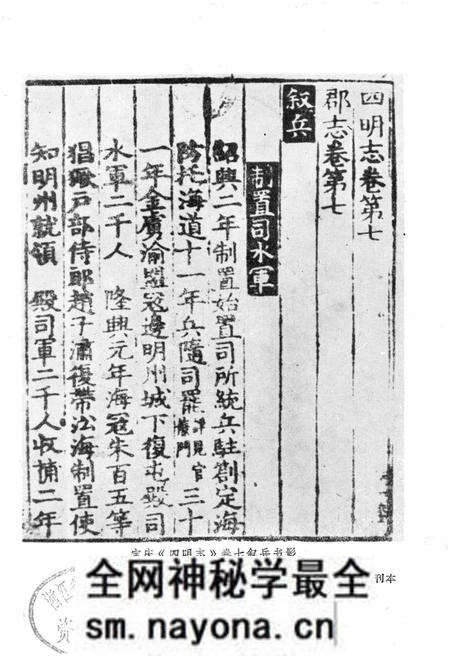 四明志卷第七
郡志卷第七
叙兵
制置司水軍
紹興二年制置始置司所統兵駐劄定海
防托海道十一年兵隨司罷詳見官廢門三十
一年金虜渝盟寇邊明州城下復屯殿司
水軍二千人 隆興元年海寇朱百五等
猖獗户部侍郎趙子潚復帶沿海制置使
知明州就領 殿司軍二千人收捕二年
宝庆《四明志》卷七叙兵书影
刊本
全网神秘学最全
sm.nayona.cn
资